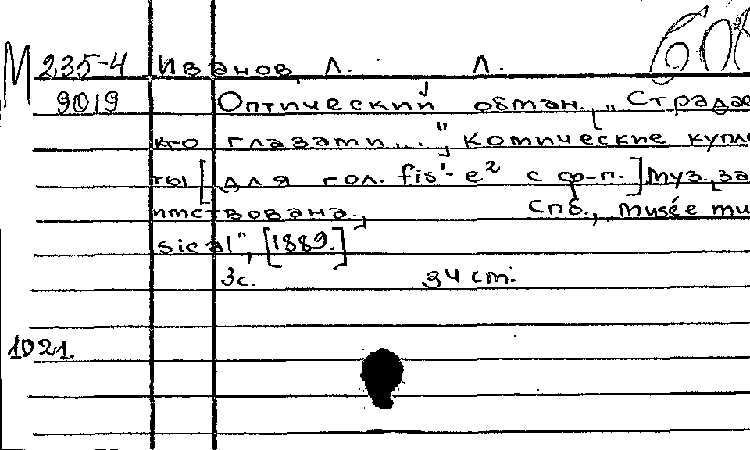 М 235-4 Иванов, Л. Л.
9019 Оптический обман. „Страдаю
кго глазами...", комические купле
ты [для гол. fis¹- e² с ф-п.] Муз. за
имствована., Спб., Musée mu
sical", [1889.]
3с. 34 cm.
1021.